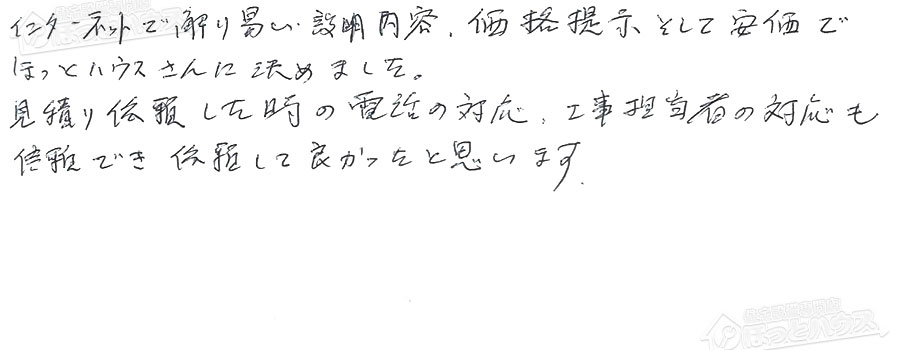 インターネットで解り易い説明内容、価格提示そして安価で
ほっとハウスさんに決めました。
見積り依頼した時の電話の対応、工事担当者の対応も
信頼でき依頼して良かったと思います。
住宅設備専門店
ほっとハウス